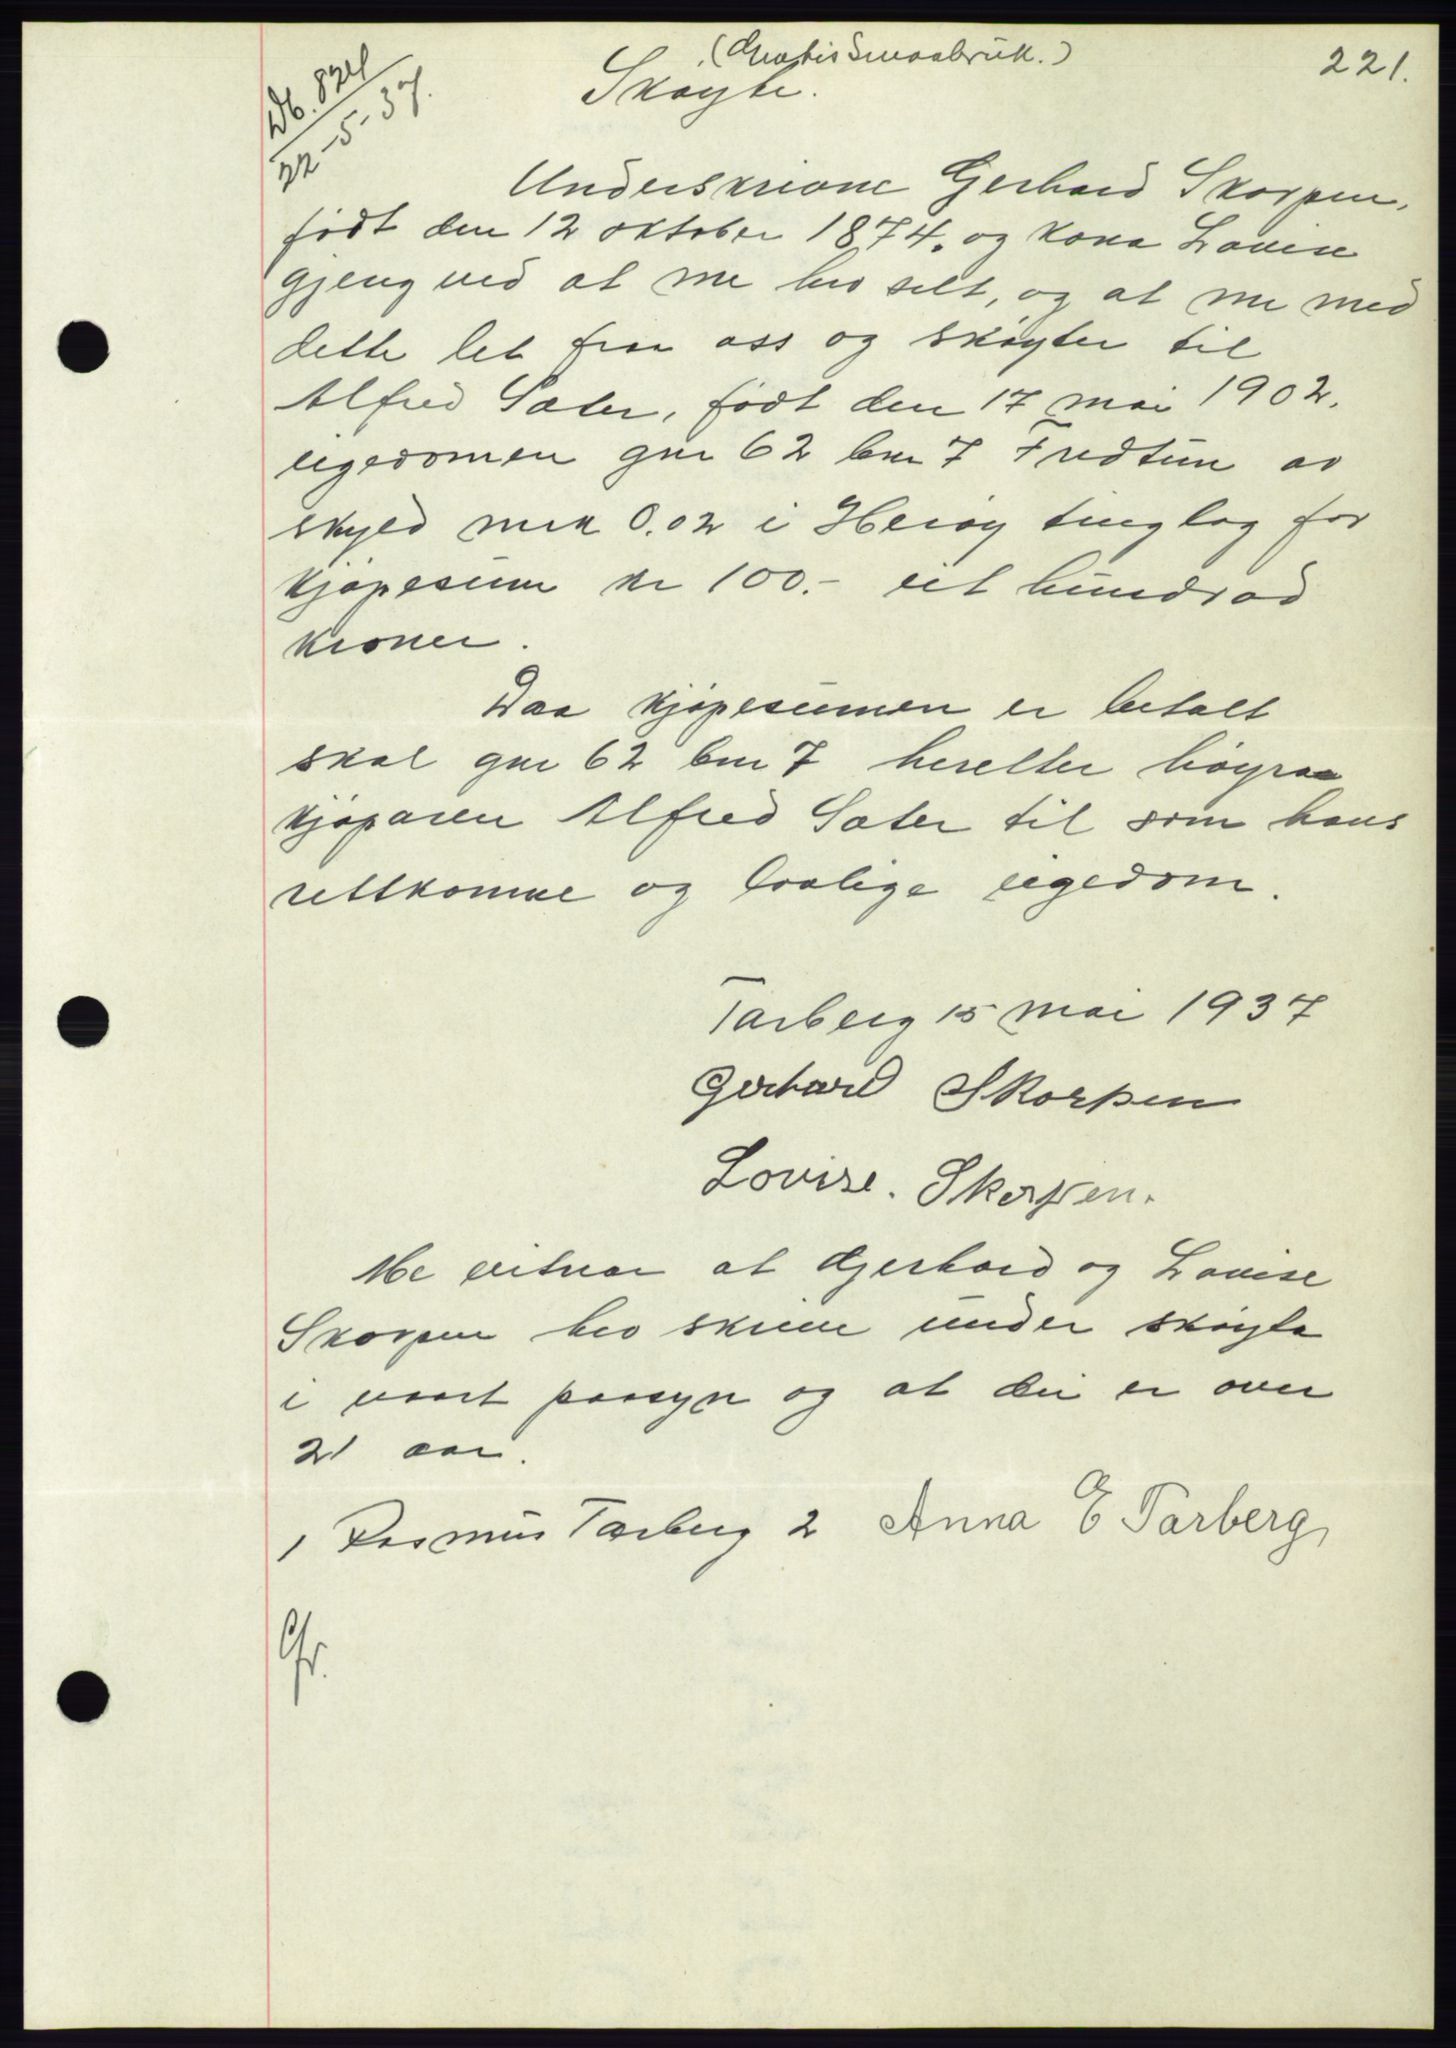 (Gratis Smaabruk.)
221.
Db. 824
22-5-37.
Skøyte.
Underskrivne Gerhard Skorpen,
født den 12 oktober 1874. og kona Lovise
gjeng ved at me hev selt, og at me med
dette let fraa oss og skøyter til
Alfred Sæter, født den 17 mai 1902.
eigedomen gnr 62 bnr 7 Fredtun av
skyld mrk 0.02 i Herøy tinglag for
kjøpesum kr 100.- eit hundrad
kroner.
Daa kjøpesumen er betalt
skal gnr 62 bnr 7 heretter høyraa
kjøparen Alfred Sæter til som hans
rettkomne og lovlige eigedom.
Tarberg 15 mai 1937
Gerhard Skorpen
Lovise. Skorpen.
Me vitnar at Gjerhard og Lovise
Skorpen hev skrive under skøyta
i vaart paasyn og at dei er over
21 aar.
1 Rasmus Tarberg 2 Anna E Tarberg,